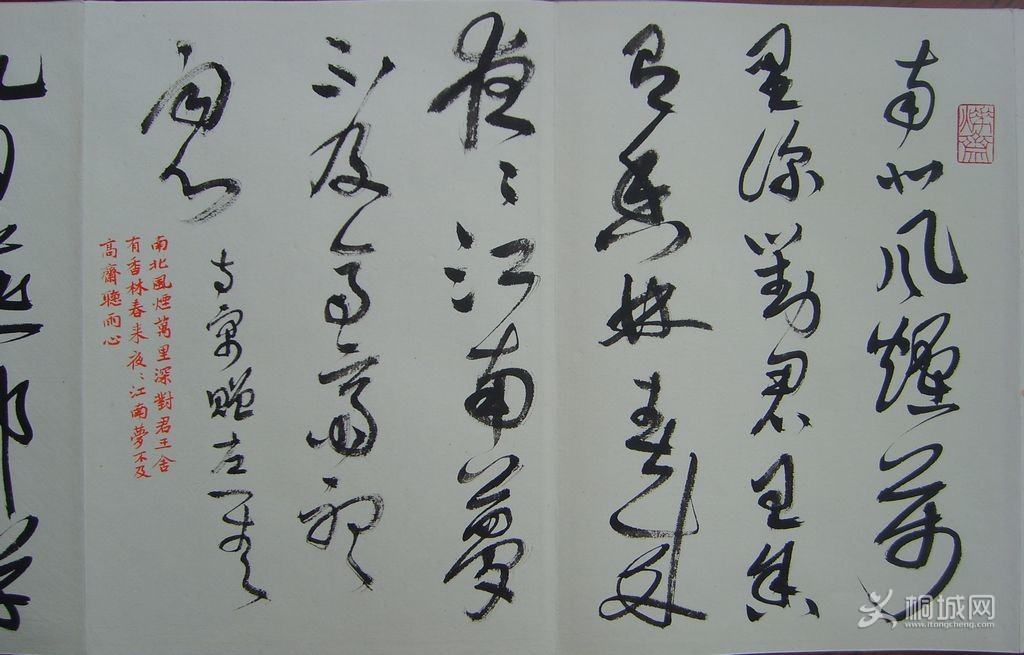 南北风煙萬
里深對君里舍
有香林春来
夜〻江南夢
不及高齋聽
雨心
古寓贈左一
南北風煙萬里深對君王舍
有香林春来夜〻江南夢不及
高齋聽雨心
桐城网
www.itongcheng.com